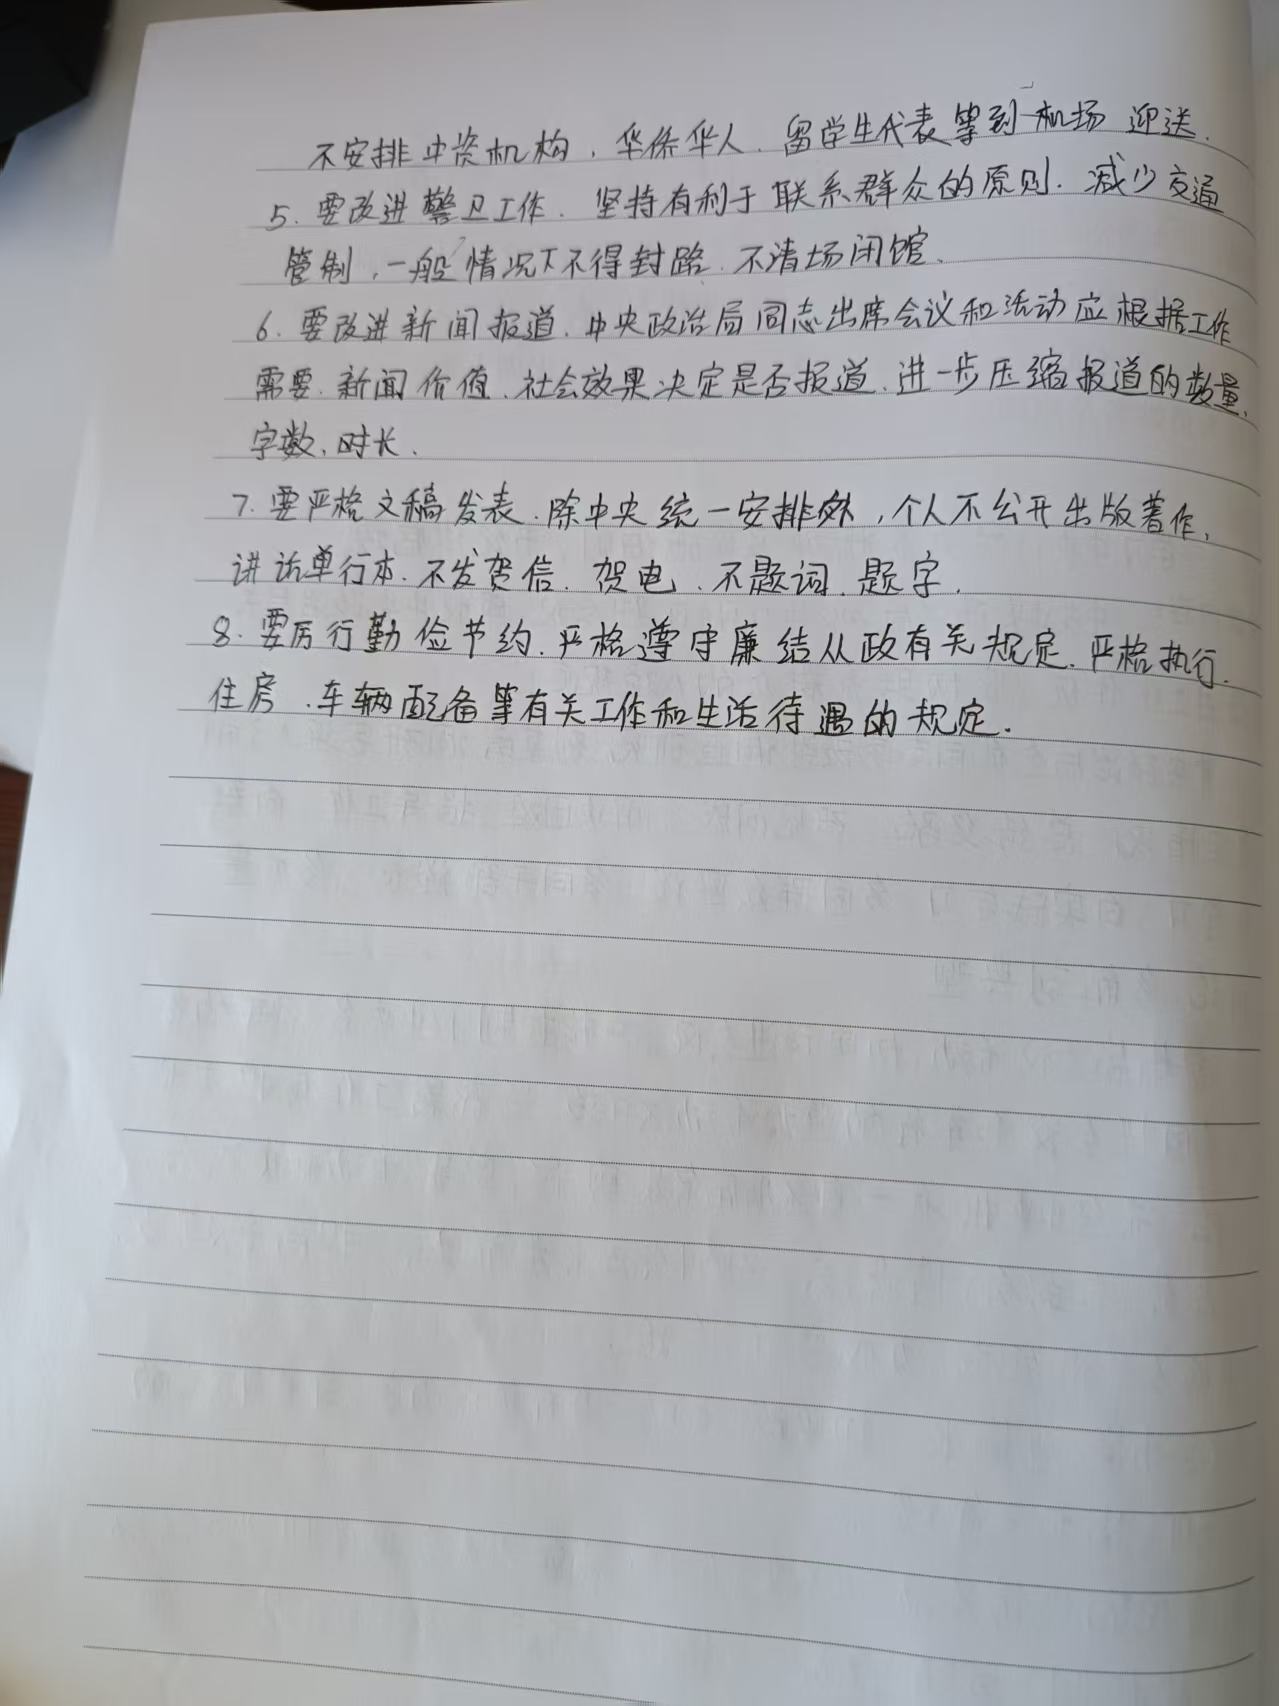 不安排中资机构、华侨华人、留学生代表等到机场迎送.
5. 要改进警卫工作. 坚持有利于联系群众的原则. 减少交通
管制, 一般情况下不得封路. 不清场闭馆.
6. 要改进新闻报道. 中央政治局同志出席会议和活动应根据工作
需要. 新闻价值. 社会效果决定是否报道. 进一步压缩报道的数量、
字数、时长.
7. 要严格文稿发表. 除中央统一安排外, 个人不公开出版著作、
讲话单行本. 不发贺信. 贺电. 不题词. 题字.
8. 要厉行勤俭节约. 严格遵守廉结从政有关规定. 严格执行
住房、车辆配备等有关工作和生活待遇的规定.